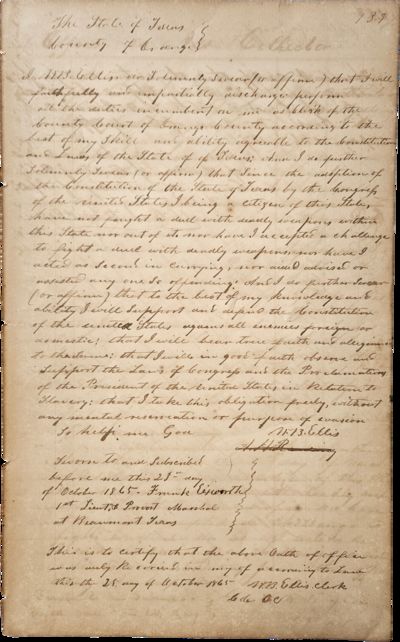 The State of Texas
County of Orange
I W.B. Ellis do Solemnly Swear (or affirm) that I will
faithfully and impartially discharge perform
all the duties incumbent on me as Clerk of the
County Court of Orange County according to the
best of my Skill and ability agreeable to the Constitution
and Laws of the State of of Texas; And I do further
Solemnly Swear (or affirm) that Since the adoption of
the Constitution of the State of Texas by the Congress
of the United States I being a citizen of this State,
have not fought a duel with deadly weapons within
this State nor out of it nor have I accepted a challenge
to fight a duel with deadly weapons, nor have I
acted as Second in carrying, nor aided advised or
assisted any one So offending; And I do further Swear
(or affirm) that to the best of my Knowledge and
ability I will Support and defend the Constitution
of the united States against all enemies foreign or
domestic; that I will bear true faith and allegiance
to the Same: that I will in good faith observe and
Support the Laws of Congress and the Proclamations
of the President of the United States in Relation to
Slavery: that I take this obligation freely, without
any mental reservation or purpose of evasion
So help me God
W.B. Ellis
Sworn to and Subscribed
before me this 25th day
of October 1865. Frank
1st Lieut & Provost Marshal
at Beaumont Texas
This is to certify that the above Oath of office
was duly Recorded in my of according to Law
this the 25 day of October 1865
W.B. Ellis Clerk